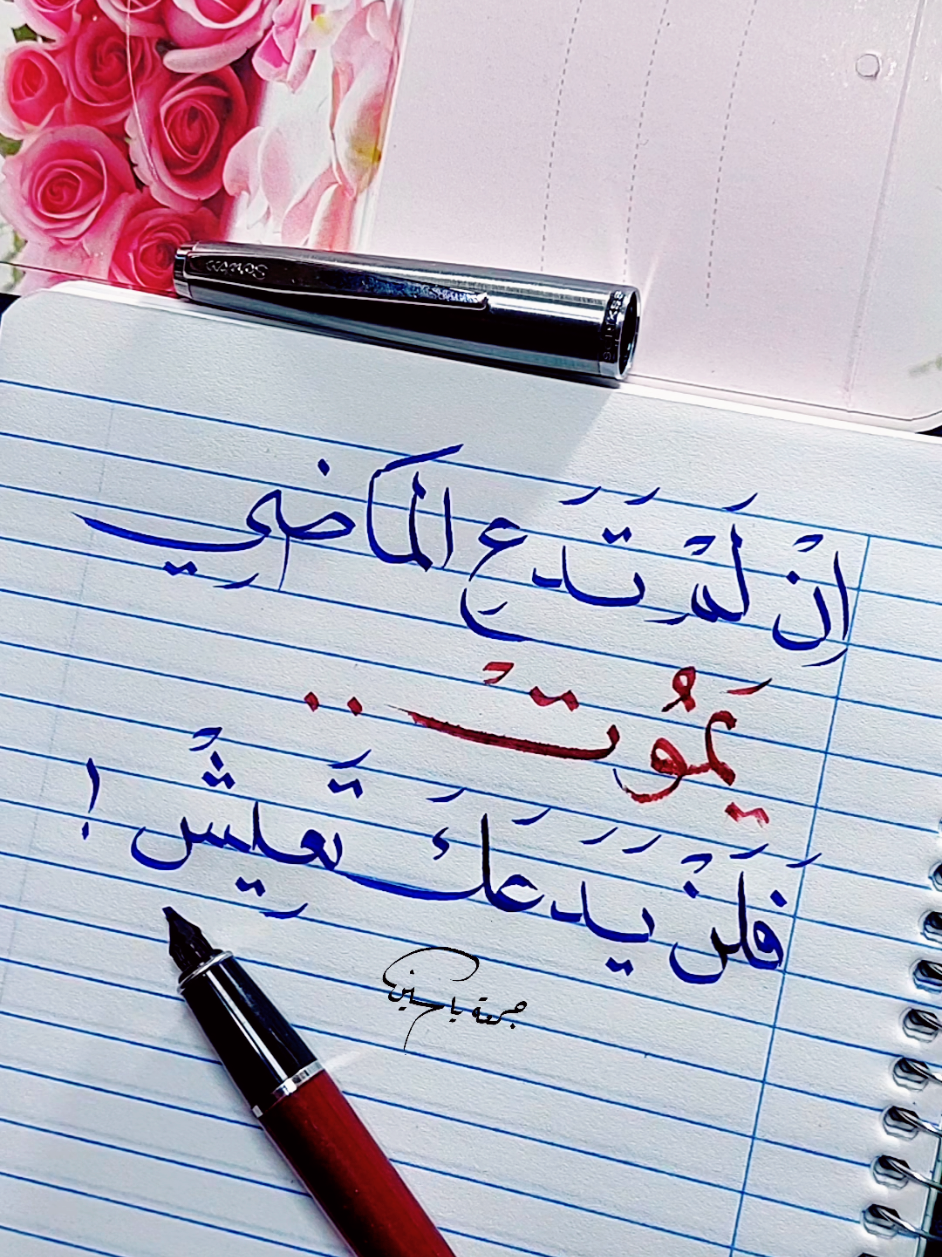 اِنْ لَمْ تَدَعِ المَاضِي
يَمُوتْ ..
فَلَنْ يَدَعَكَ تَعِيشْ !
جمعة ياسين